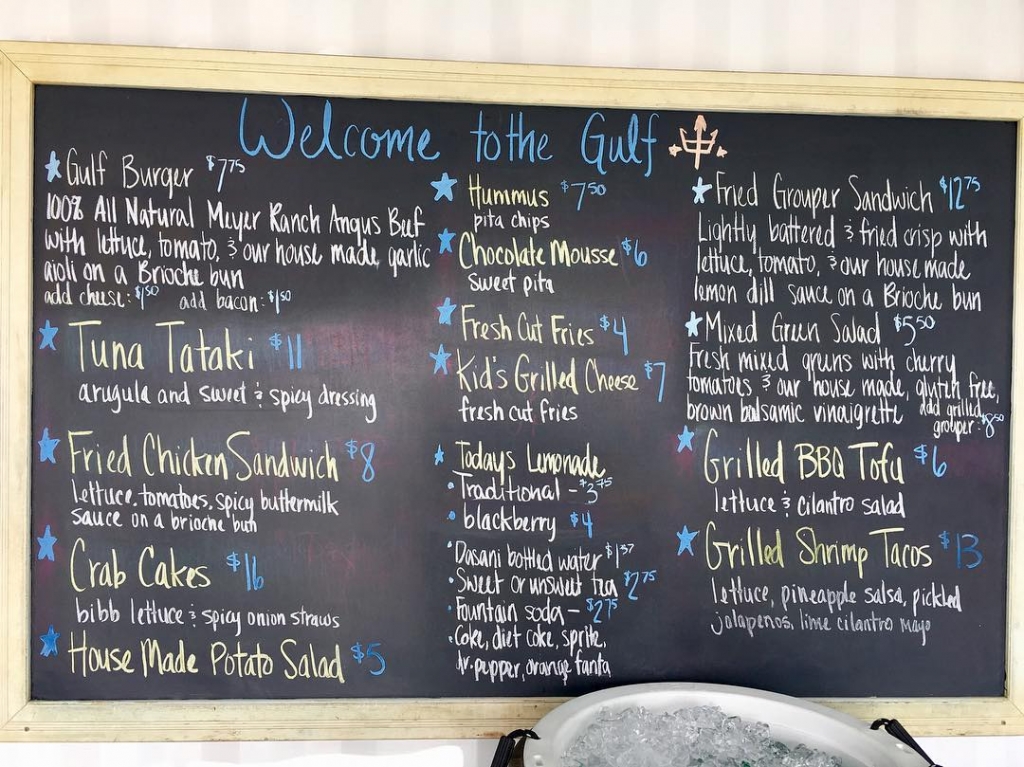 Welcome to the Gulf
Gulf Burger $7.75
100% All Natural Meyer Ranch Angus Beef
with lettuce, tomato, & our house made garlic
aioli on a Brioche bun
add cheese: $1.50 add bacon: $1.50
Tuna Tataki $11
arugula and sweet & spicy dressing
Fried Chicken Sandwich $8
lettuce, tomatoes, spicy buttermilk
sauce on a brioche bun
Crab Cakes $16
bibb lettuce & spicy onion straws
House Made Potato Salad $5
Hummus $7.50
pita chips
Chocolate Mousse $6
Sweet pita
Fresh Cut Fries $4
Kid's Grilled Cheese $7
fresh cut fries
Todays Lemonade
Traditional - $3.75
blackberry $4
Dasani bottled water $1.37
Sweet or unsweet tea $2.75
Fountain soda - $2.75
Coke, diet coke, sprite,
dr. pepper, orange fanta
Fried Grouper Sandwich $12.75
Lightly battered & fried crisp with
lettuce, tomato, & our house made
lemon dill sauce on a Brioche bun
Mixed Green Salad $5.50
Fresh mixed greens with cherry
tomatoes & our house made, gluten free,
brown balsamic vinaigrette add grilled
grouper: $8.50
Grilled BBQ Tofu $6
lettuce & cilantro salad
Grilled Shrimp Tacos $13
lettuce, pineapple salsa, pickled
jalapenos, lime cilantro mayo